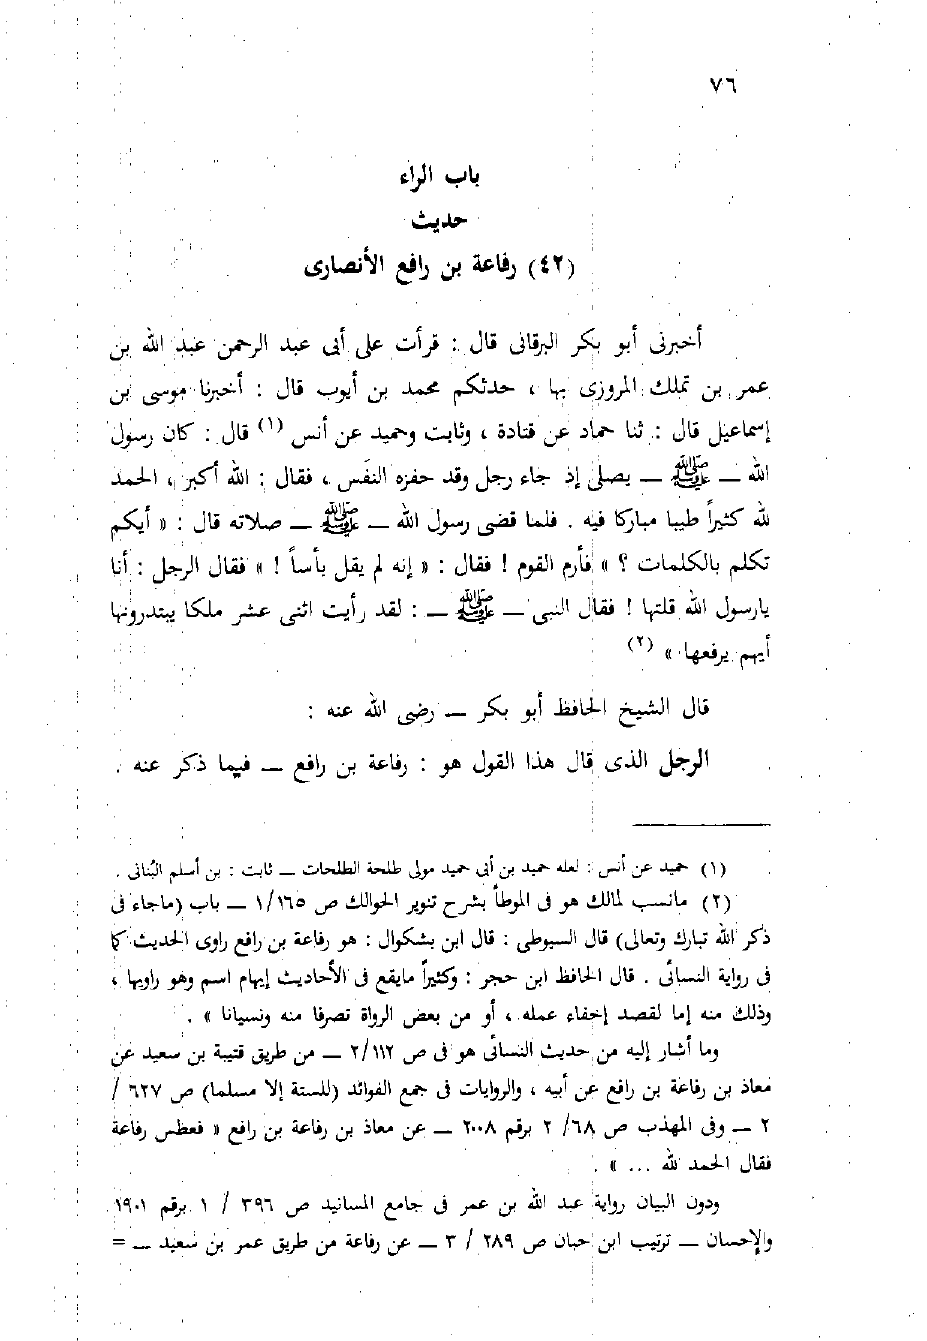 ٧٦
باب الراء
حديث
(٤٢) رفاعة بن رافع الأنصارى
أخبرنى أبو بكر البرقانى قال : قرأت على أبى عبد الرحمن عبد الله بن
عمر بن تملك المروزى بها ، حدثكم محمد بن أيوب قال : أخبرنا موسى بن
إسماعيل قال : ثنا حماد عن قتادة ، وثابت وحميد عن أنس (١) قال : كان رسول
الله — ﷺ — يصلى إذ جاء رجل وقد حفزه النفَس ، فقال : الله أكبر ، الحمد
لله كثيراً طيبا مباركا فيه . فلما قضى رسول الله — ﷺ — صلاته قال : « أيكم
تكلم بالكلمات ؟ » فأرم القوم ! فقال : « إنه لم يقل بأساً ! » فقال الرجل : أنا
يارسول الله قلتها ! فقال النبى — ﷺ — : لقد رأيت اثنى عشر ملكا يبتدرونها
أيهم يرفعها » (٢)
قال الشيخ الحافظ أبو بكر — رضى الله عنه :
الرجل الذى قال هذا القول هو : رفاعة بن رافع — فيما ذكر عنه .
(١) حميد عن أنس : لعله حميد بن أبى حميد مولى طلحة الطلحات — ثابت : بن أسلم البُنانى .
(٢) مانسب لمالك هو فى الموطأ بشرح تنوير الحوالك ص ١/١٦٥ — باب (ماجاء فى
ذكر الله تبارك وتعالى) قال السيوطى : قال ابن بشكوال : هو رفاعة بن رافع راوى الحديث كما
فى رواية النسائى . قال الحافظ ابن حجر : وكثيراً مايقع فى الأحاديث إبهام اسم وهو راويها ،
وذلك منه إما لقصد إخفاء عمله ، أو من بعض الرواة تصرفا منه ونسيانا » .
وما أشار إليه من حديث النسائى هو فى ص ٢/١١٢ — من طريق قتيبة بن سعيد عن
معاذ بن رفاعة بن رافع عن أبيه ، والروايات فى جمع الفوائد (للستة إلا مسلما) ص ٦٢٧ /
٢ — وفى المهذب ص ٦٨/ ٢ برقم ٢٠٠٨ — عن معاذ بن رفاعة بن رافع « فعطس رفاعة
فقال الحمد لله ... » .
ودون البيان رواية عبد الله بن عمر فى جامع المسانيد ص ٣٩٦ / ١ برقم ١٩٠١
والإحسان — ترتيب ابن حبان ص ٢٨٩ / ٣ — عن رفاعة من طريق عمر بن سعيد — =